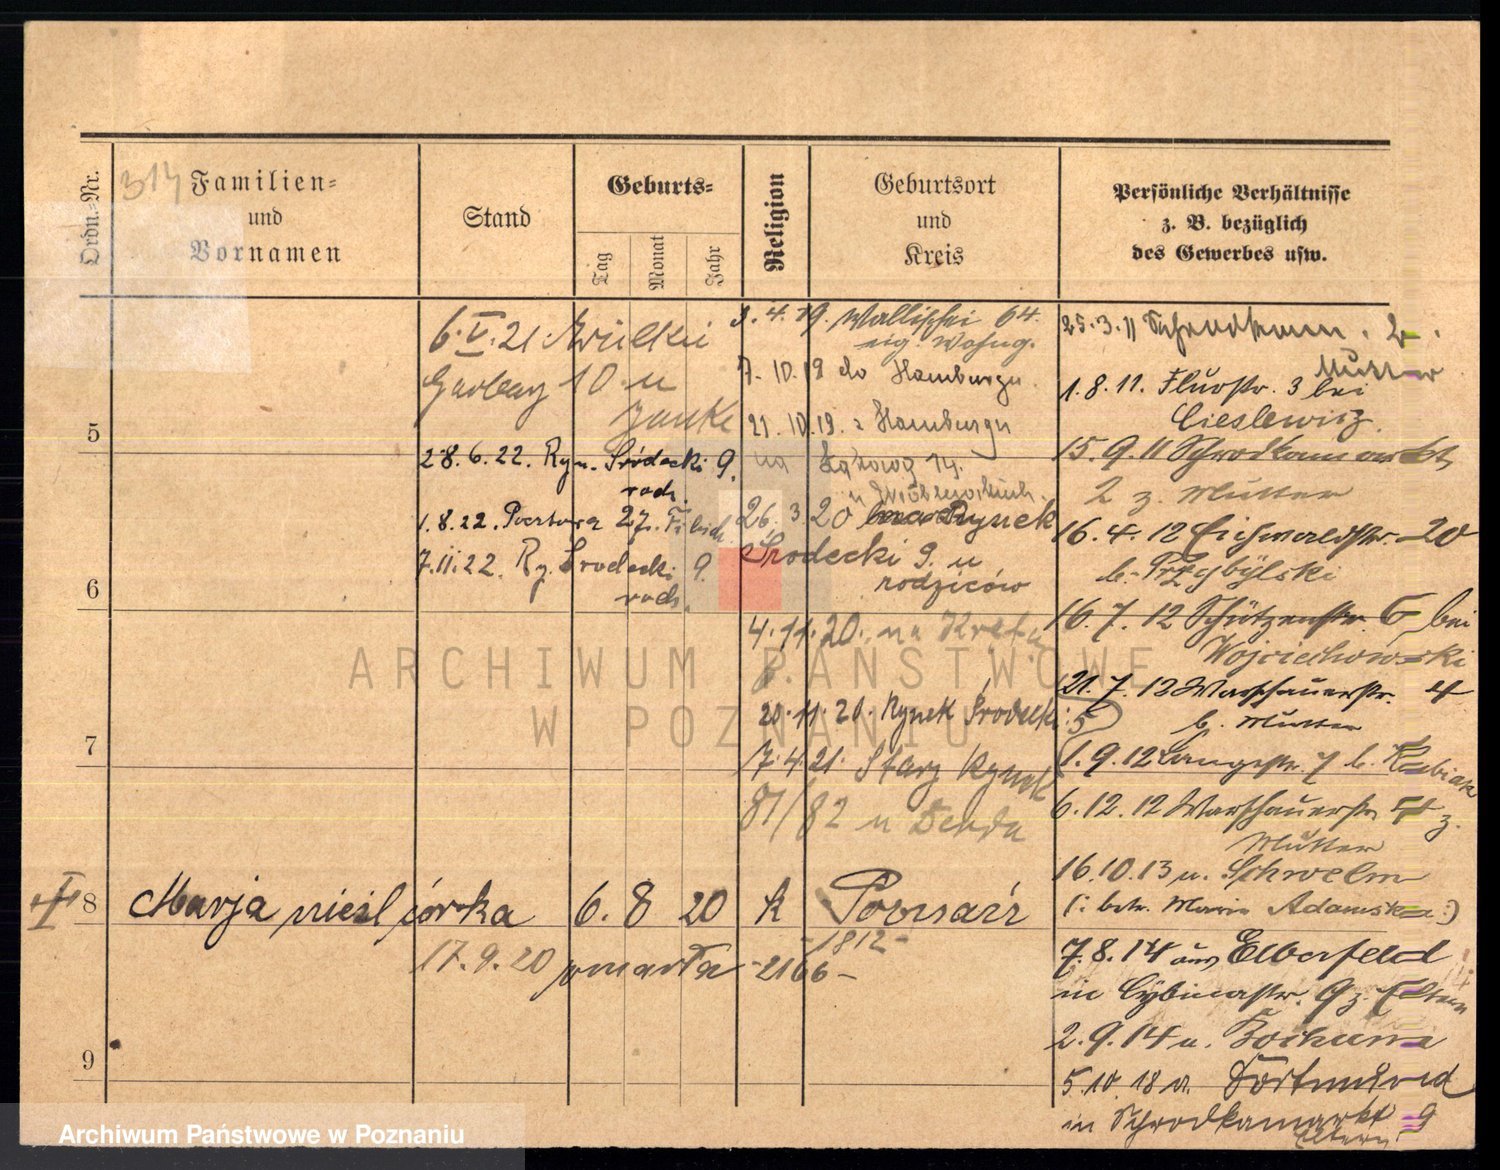 314
Ordn.-Nr.
Familien-
und
Vornamen
Stand
Geburts-
Tag
Monat
Jahr
Religion
Geburtsort
und
Kreis
Persönliche Verhältnisse
z. B. bezüglich
des Gewerbes usw.
6.V.21 Wielkie
Garbary 10 u
Janke
28.6.22. Ryn. Śródecki 9.
rodz.
1.8.22. Pocztowa 27.
7.11.22. Ry. Srodecki 9.
rodz.
3.4.19. Wallischei 64.
eig. Wohng.
7.10.19 do Hamburga.
21.10.19. z Hamburga
na Łąkową 14.
26.3.20 Rynek
Środecki 9. u
rodziców
4.11.20. na
20.11.20. Rynek Środecki 5
7.4.21. Stary Rynek
81/82 u
25.3.11 Schrodkamm. 2.
Mutter
1.8.11. Flurstr. 3 bei
Cieslewicz.
15.9.11 Schrodkamarkt
2 z. Mutter
16.4.12 Eichwaldstr. 20
b. Przybylski
16.7.12 Schützenstr. 6 bei
Wojciechowski
21.7.12 Warschauerstr. 4
b. Mutter
1.9.12 Langestr. 7 b. Kubiak
6.12.12 Warschauerstr 4 z.
Mutter
16.10.13 n. Schwelm
(: betr. Maria Adamska :)
7.8.14 aus Elberfeld
in Cybinastr. 9 z. Eltern
2.9.14 n. Bochum
5.10.18 v. Dortmund
in Schrodkamarkt 9
Eltern
5
6
7
8
Marja nieśl córka 6. 8 20 k Poznań
17.9.20 zmarła -2166-
-1812-
9
ARCHIWUM PAŃSTWOWE
W POZNANIU
Archiwum Państwowe w Poznaniu